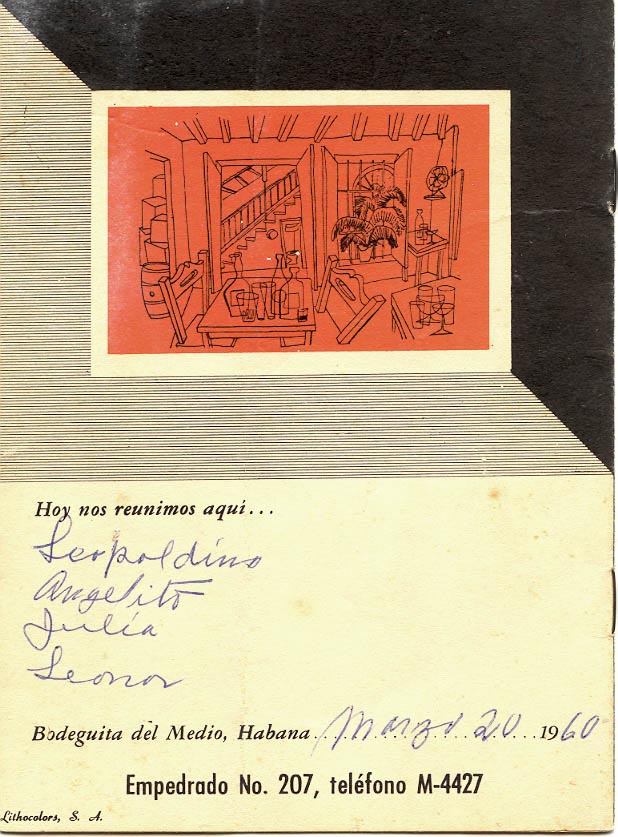 Hoy nos reunimos aquí...
Leopoldino
Angelito
Julia
Leonor
Bodeguita del Medio, Habana...Marzo 20...1960
Empedrado No. 207, teléfono M-4427
Lithocolors, S. A.